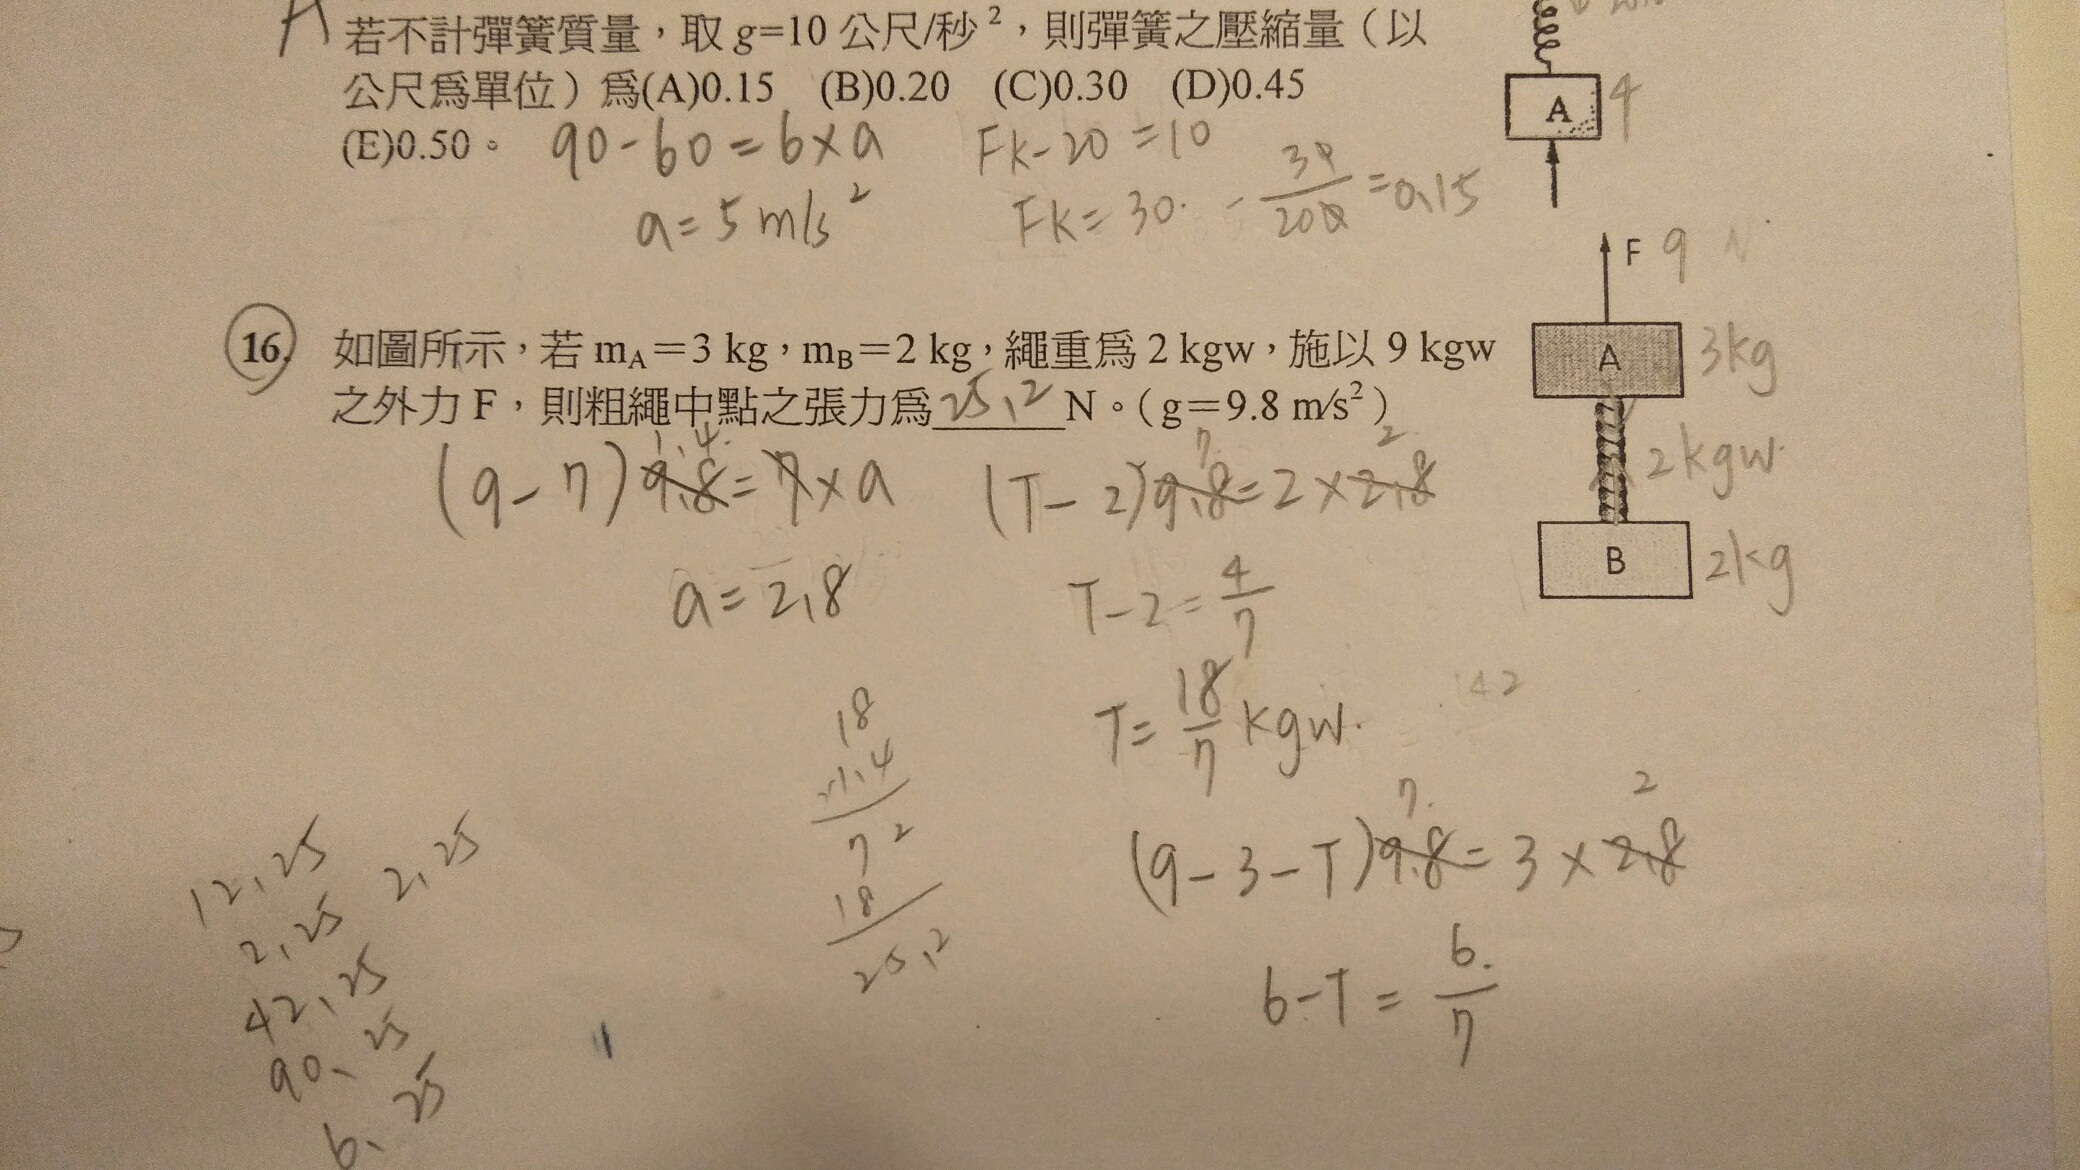 若不計彈簧質量，取 g=10 公尺/秒²，則彈簧之壓縮量（以
公尺為單位）為(A)0.15 (B)0.20 (C)0.30 (D)0.45
(E)0.50。
90-60=6×a
a=5 m/s²
Fk-20=10
Fk=30.
30/200=0.15
A 4
16. 如圖所示，若 mA＝3 kg，mB＝2 kg，繩重為 2 kgw，施以 9 kgw
之外力 F，則粗繩中點之張力為 25.2 N。（g＝9.8 m/s²）
F 9 N
A 3kg
2kgw
B 2kg
1.4
(9-7)9.8=7×a
a=2.8
7 2
(T-2)9.8=2×2.8
T-2=4/7
T=18/7 kgw.
7. 2
(9-3-T)9.8=3×2.8
6-T=6/7
18
1.4
72
18
25.2
12.25
2.25 2.25
42.25
90.25
6.25